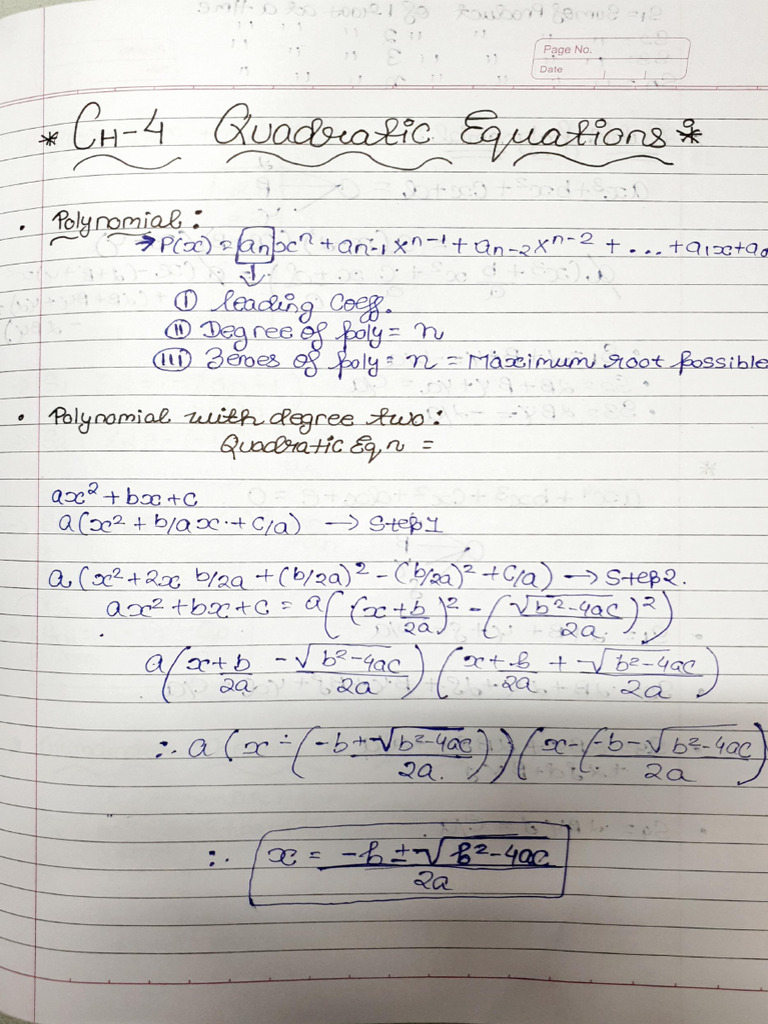 Page No.
Date
* CH-4 Quadratic Equations *
• Polynomial:
→ P(x) = aₙxⁿ + aₙ₋₁xⁿ⁻¹ + aₙ₋₂xⁿ⁻² + ... + a₁x + a₀
↓
(I) leading Coeff.
(II) Degree of poly = n
(III) Zeroes of poly = n = Maximum root possible
• Polynomial with degree two:
Quadratic Eqn =
ax² + bx + c
a(x² + b/ax + c/a) → Step 1
a(x² + 2x b/2a + (b/2a)² - (b/2a)² + c/a) → Step 2.
ax² + bx + c = a((x+b/2a)² - (√b²-4ac/2a)²)
a(x+b/2a - √b²-4ac/2a)(x+b/2a + √b²-4ac/2a)
∴ a(x - (-b+√b²-4ac/2a))(x-(-b-√b²-4ac/2a)
∴ x = -b ± √b²-4ac/2a